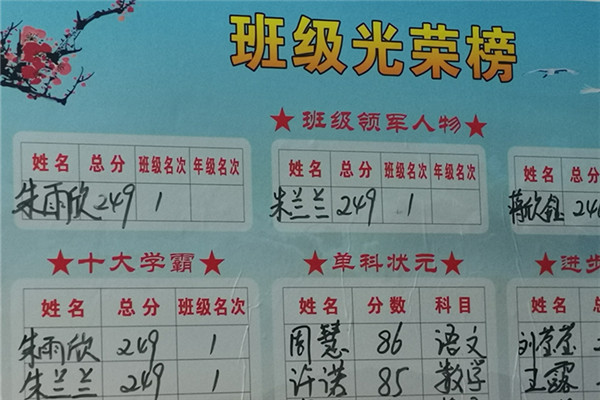 班级光荣榜
★班级领军人物★
姓名 总分 班级名次 年级名次
朱雨欣 249 1
姓名 总分 班级名次 年级名次
朱兰兰 249 1
姓名 总分
蒋欣鑫 24
★十大学霸★
姓名 总分 班级名次
朱雨欣 249 1
朱兰兰 249 1
★单科状元★
姓名 分数 科目
周慧 86 语文
许诺 85 数学
★进步
姓名
刘莹莹
王露